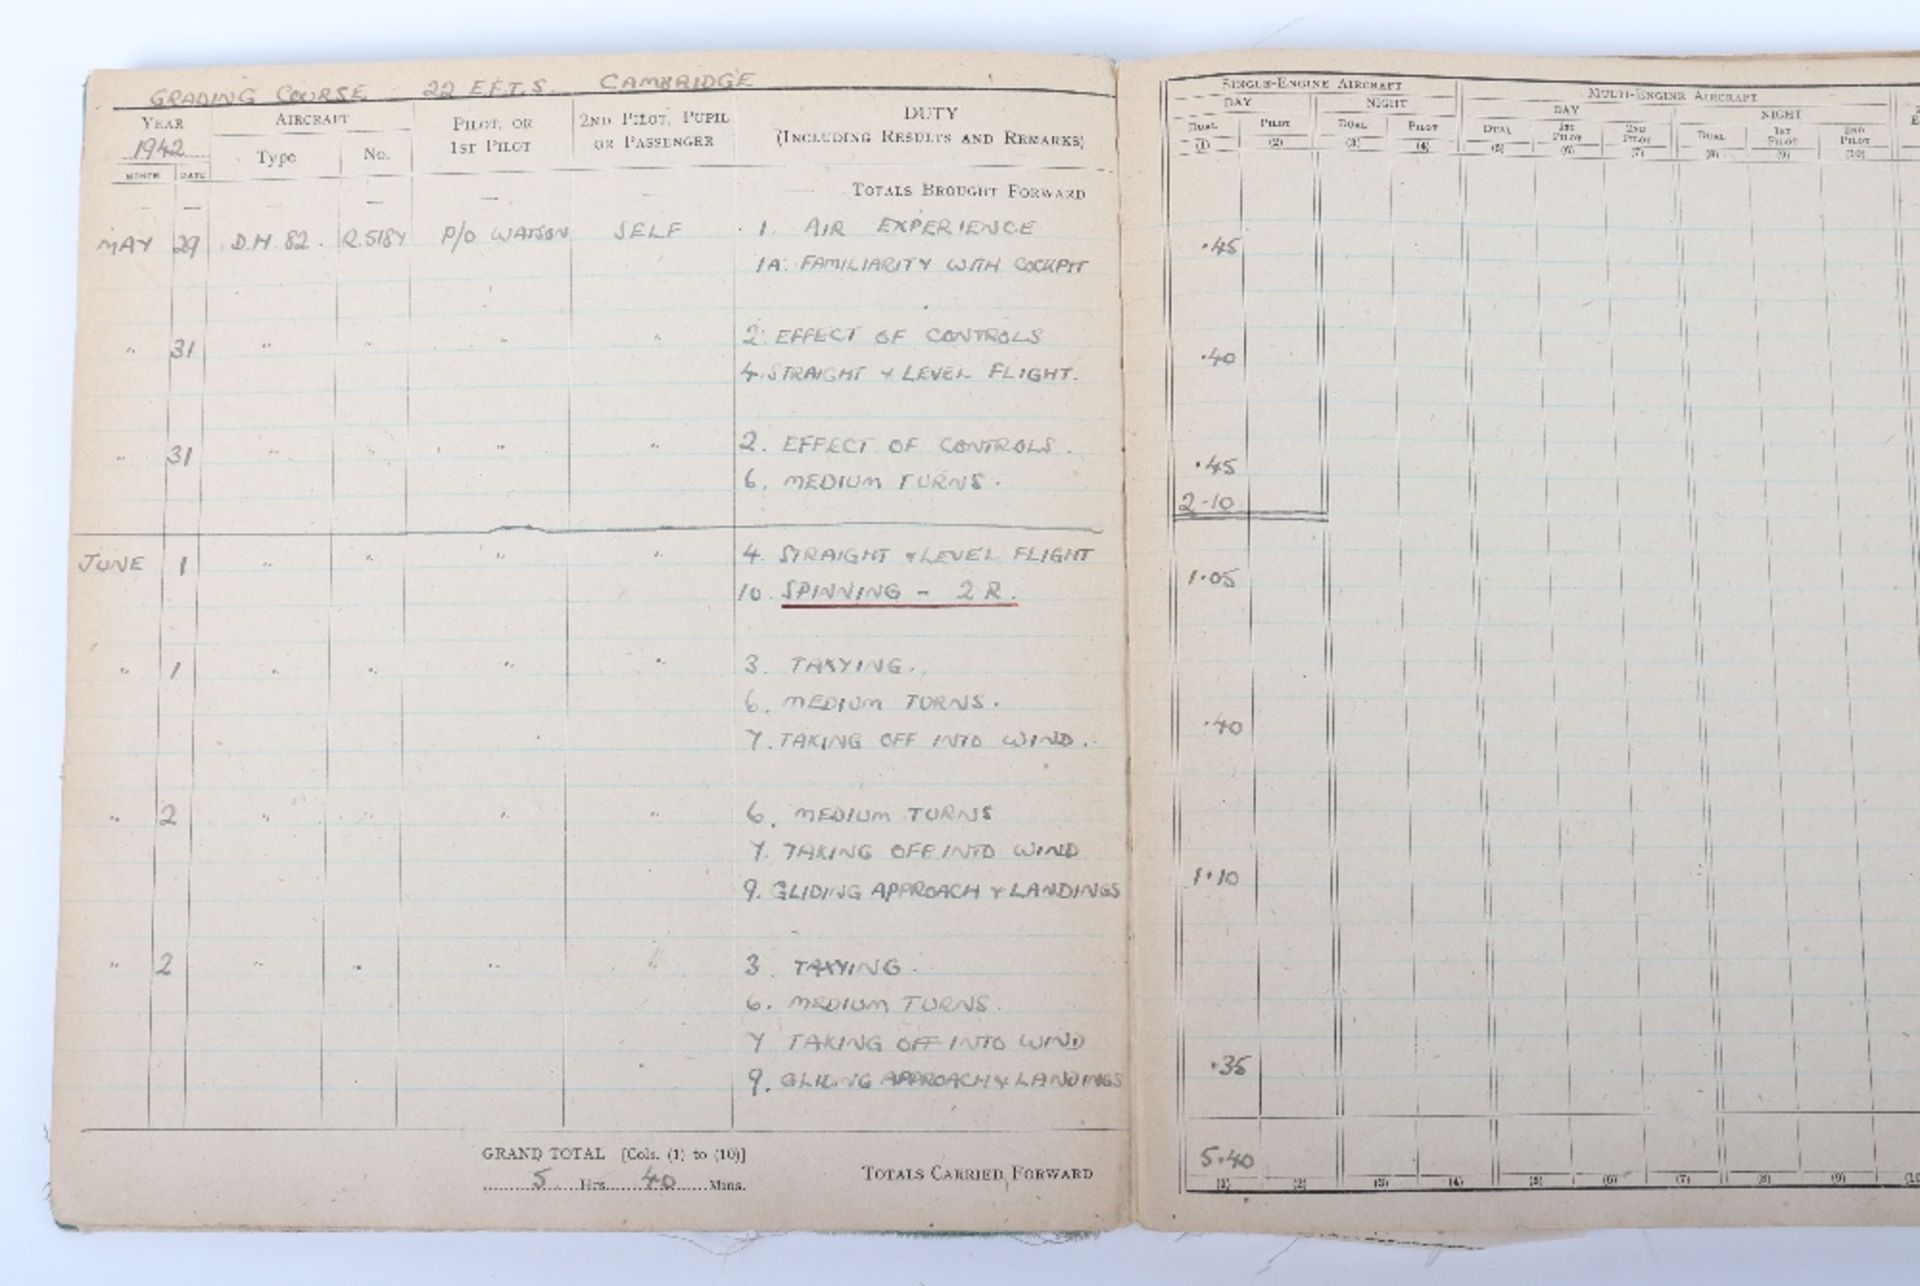 GRADING COURSE 22 E.F.T.S. CAMBRIDGE
YEAR AIRCRAFT PILOT, OR 2ND PILOT, PUPIL DUTY
1942 Type No. 1ST PILOT OR PASSENGER (INCLUDING RESULTS AND REMARKS)
MONTH DATE
— — — — — — TOTALS BROUGHT FORWARD
MAY 29 D.H. 82. P/O WATSON SELF 1. AIR EXPERIENCE
1A. FAMILIARITY WITH COCKPIT
" 31 " " " " 2. EFFECT OF CONTROLS
4. STRAIGHT & LEVEL FLIGHT.
" 31 " " " " 2. EFFECT OF CONTROLS.
6. MEDIUM TURNS.
JUNE 1 " " " " 4. STRAIGHT & LEVEL FLIGHT
10. SPINNING - 2 R.
" 1 " " " " 3. TAXYING.
6. MEDIUM TURNS.
7. TAKING OFF INTO WIND.
" 2 " " " " 6. MEDIUM TURNS
7. TAKING OFF INTO WIND
9. GLIDING APPROACH & LANDINGS
" 2 " " " " 3. TAXYING.
6. MEDIUM TURNS.
7 TAKING OFF INTO WIND
9. GLIDING APPROACH & LANDINGS
GRAND TOTAL [Cols. (1) to (10)]
5 Hrs. 40 Mins.
TOTALS CARRIED FORWARD
SINGLE-ENGINE AIRCRAFT MULTI-ENGINE AIRCRAFT
DAY NIGHT DAY NIGHT
DUAL PILOT DUAL PILOT DUAL 1ST PILOT 2ND PILOT DUAL 1ST PILOT 2ND PILOT
(1) (2) (3) (4) (5) (6) (7) (8) (9) (10)
.45
.40
.45
2.10
1.05
.40
1.10
.35
5.40
(1) (2) (3) (4) (5) (6) (7) (8) (9) (10